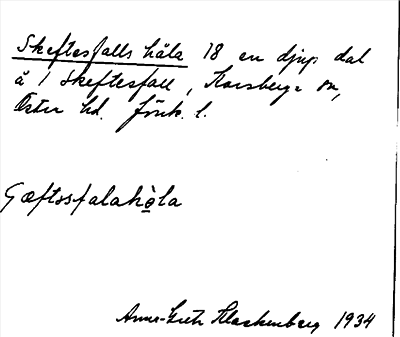 Skeftesfalls håla 18 en djup dal
å 1 Skeftesfall, Korsberga sn,
Öster hd. Jönk. l.
Gæftssfalahòla
Anna-Greta Hackenberg 1934